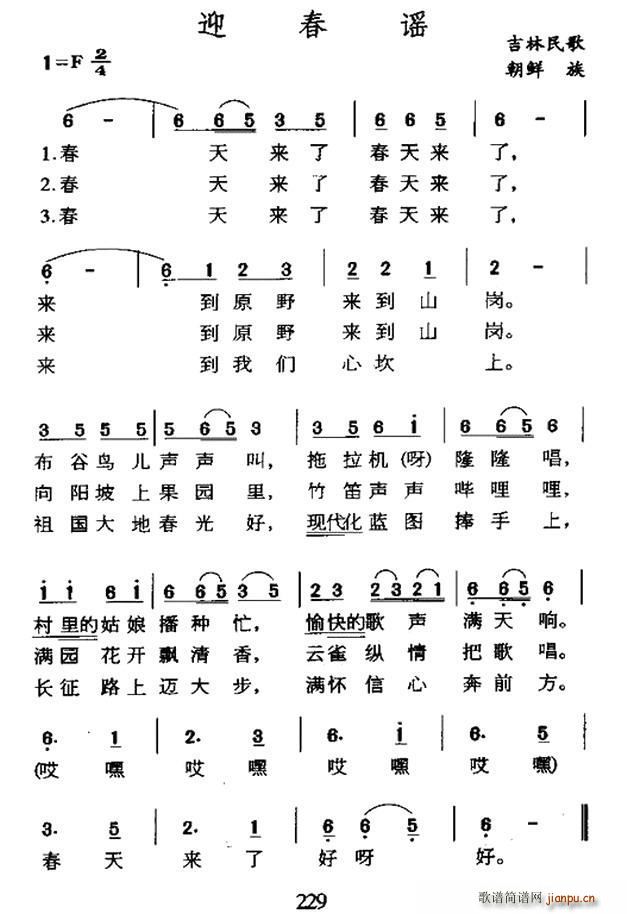 迎春谣
1=F 2/4
吉林民歌
朝鲜 族
6 - | 6 6 5 3 5 | 6 6 5 | 6 - |
1.春 天来了 春天来 了,
2.春 天来了 春天来 了,
3.春 天来了 春天来 了,
6 - | 6 1 2 3 | 2 2 1 | 2 - |
来 到原野 来到山 岗。
来 到原野 来到山 岗。
来 到我们 心坎 上。
3 5 5 5 | 5 6 5 3 | 3 5 6 i | 6 6 5 6 |
布谷鸟儿声声叫, 拖拉机(呀)隆隆唱,
向阳坡上果园里, 竹笛声声哔哩哩,
祖国大地春光好, 现代化蓝图捧手上,
i i 6 i | 6 6 5 3 5 | 2 3 2 3 2 1 | 6 6 5 6 |
村里的姑娘播种忙, 愉快的歌声满天响。
满园花开飘清香, 云雀纵情把歌唱。
长征路上迈大步, 满怀信心奔前方。
6. 1 | 2. 3 | 6. i | 6. 5 |
(哎嘿 哎嘿 哎嘿 哎嘿)
3. 5 | 2. 1 | 6 6 5 | 6 - ‖
春天 来了 好呀 好。
229
歌谱简谱网
jianpu.cn